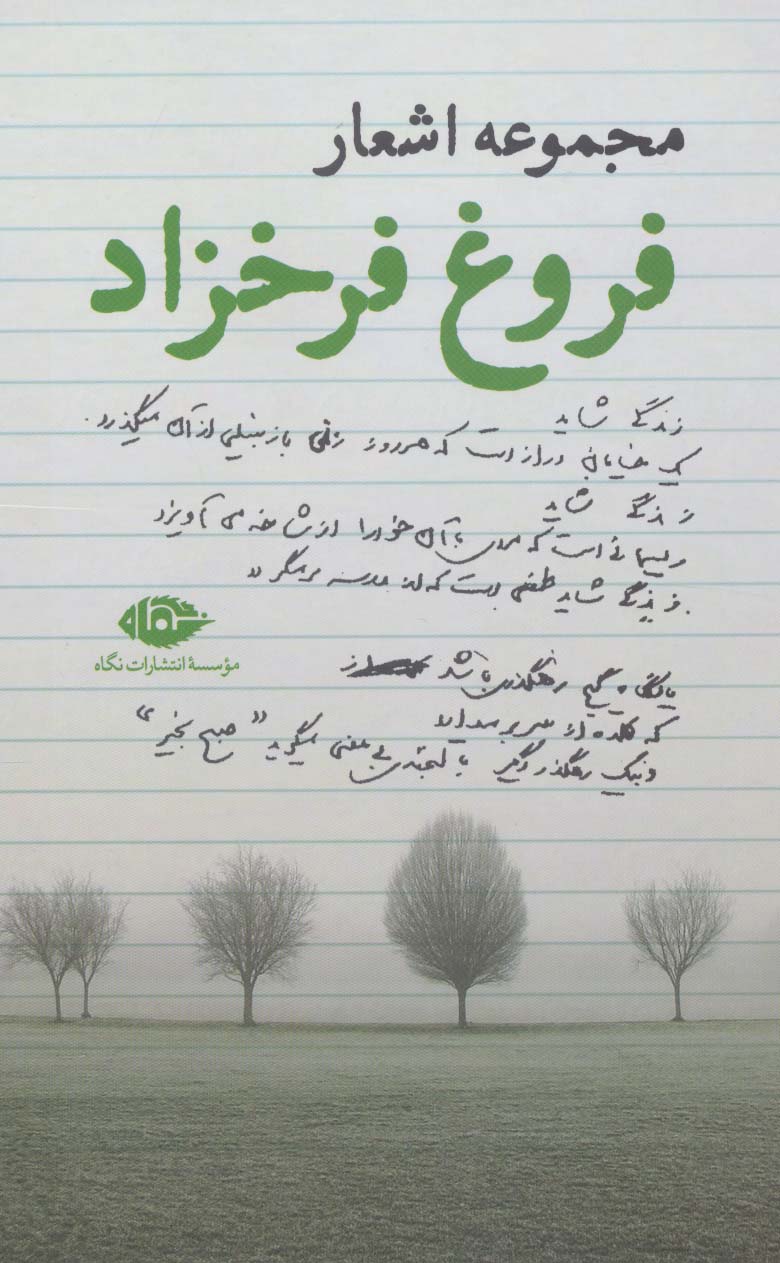 مجموعه اشعار
فروغ فرخزاد
زندگی شاید
یک خیابان درازست که هر روز زنی با زنبیلی از آن میگذرد.
زندگی شاید
ریسمانی است که مردی با آن خود را از شاخه می آویزد
زندگی شاید طفلی است که از مدرسه برمیگردد
مؤسسهٔ انتشارات نگاه
یا نگاه گیج رهگذری باشد
که کلاه از سر برمیدارد
و بیک رهگذر دیگر با لبخندی بی معنی میگوید "صبح بخیر"